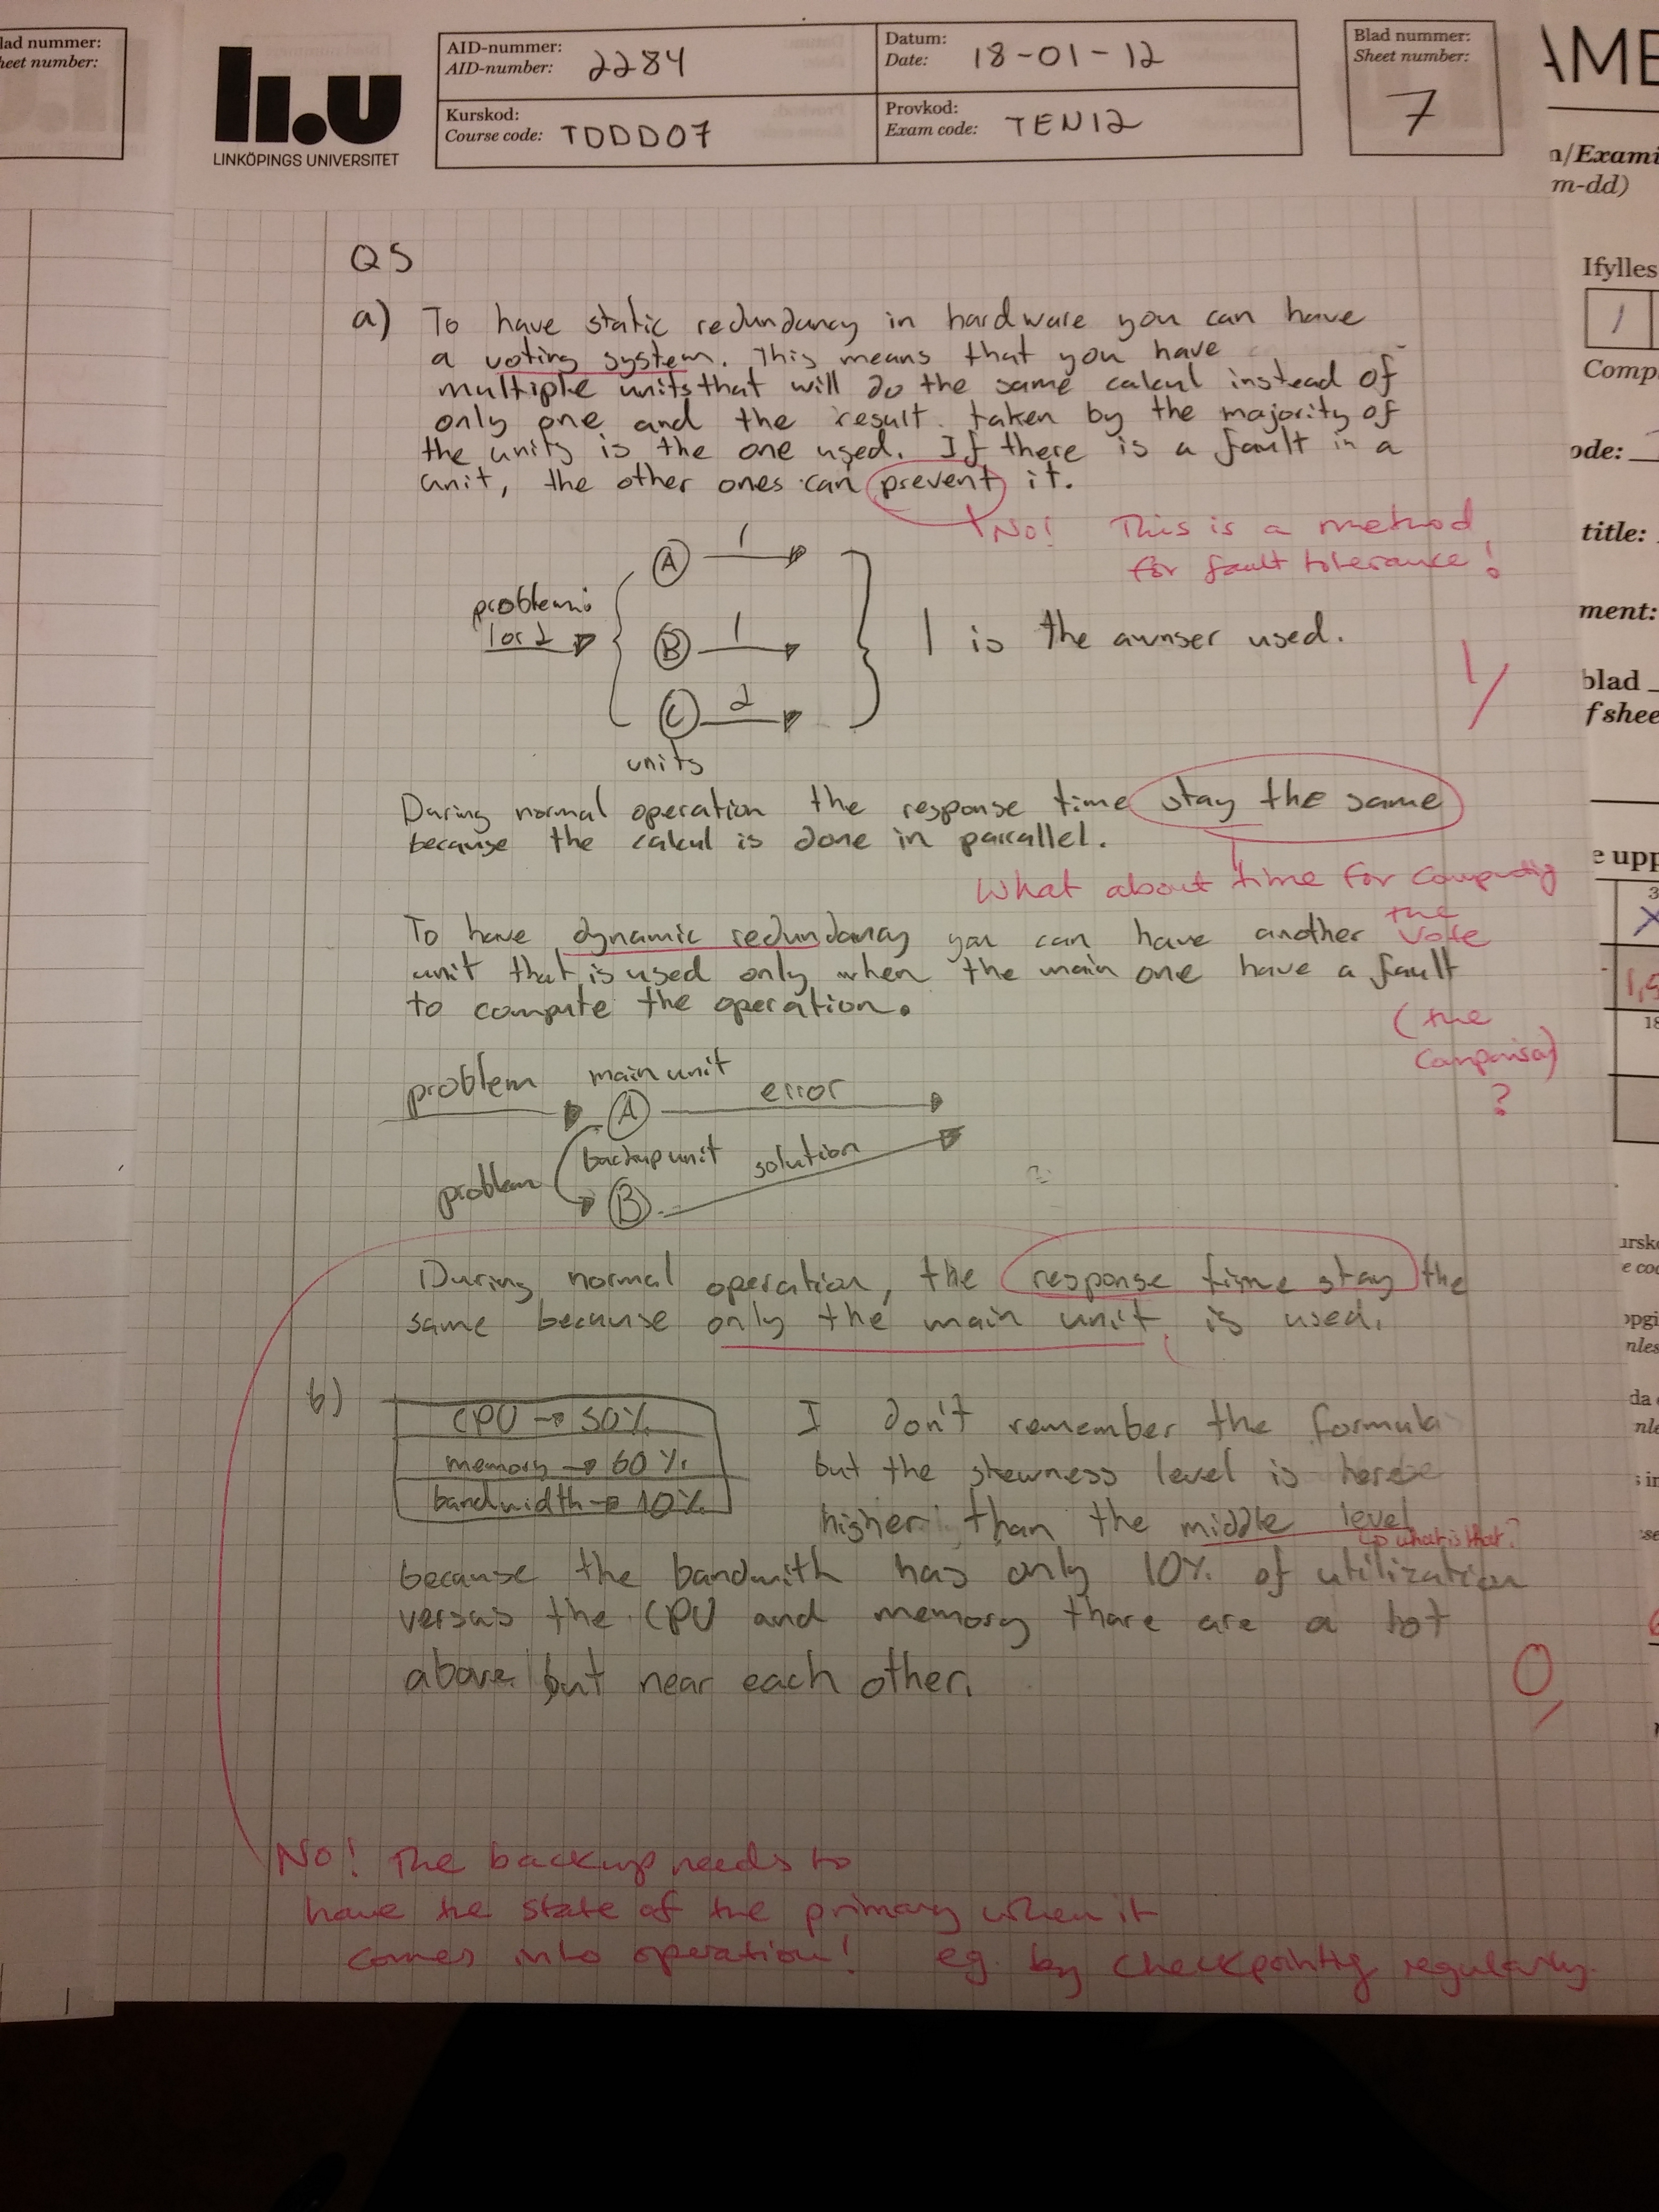 lad nummer:
heet number:
LINKÖPINGS UNIVERSITET
AID-nummer:
AID-number: 2284
Datum:
Date: 18-01-12
Kurskod:
Course code: TDDD07
Provkod:
Exam code: TEN12
Blad nummer:
Sheet number:
7
AME
n/Exami
m-dd)
Ifylles
1
Comp
ode:
title:
ment:
blad
f shee
e upp
3
X
1,5
18
Q5
a) To have static redundancy in hardware you can have
a voting system. This means that you have
multiple units that will do the same calcul instead of
only one and the result taken by the majority of
the units is the one used. If there is a fault in a
unit, the other ones can prevent it.
No! This is a method
for fault tolerance!
problem:
1 or 2
A 1
B 1
C 2
units
1 is the awnser used.
1/
During normal operation the response time stay the same
because the calcul is done in parrallel.
What about time for computing
the
vote
To have dynamic redundancy you can have another
unit that is used only when the main one have a fault
to compute the operation.
(the
comparison)
?
problem main unit
A error
backup unit
problem B solution
During normal operation, the response time stay the
same because only the main unit is used.
b)
CPU → 50%
memory → 60%
bandwidth → 10%
I don't remember the formula
but the skewness level is here
higher than the middle level
what is that?
because the bandwith has only 10% of utilization
versus the CPU and memory thare are a lot
above but near each other.
0
No! The backup needs to
have the state of the primary when it
comes into operation! eg. by checkpointing regularly.